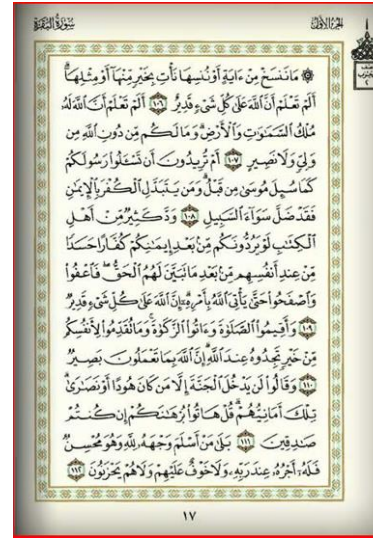 سورة البقرة
الجزء الأول
۞ مَا نَنسَخْ مِنْ ءَايَةٍ أَوْ نُنسِهَا نَأْتِ بِخَيْرٍ مِّنْهَآ أَوْ مِثْلِهَآ ۗ
أَلَمْ تَعْلَمْ أَنَّ ٱللَّهَ عَلَىٰ كُلِّ شَىْءٍ قَدِيرٌ ١٠٦ أَلَمْ تَعْلَمْ أَنَّ ٱللَّهَ لَهُۥ
مُلْكُ ٱلسَّمَٰوَٰتِ وَٱلْأَرْضِ ۗ وَمَا لَكُم مِّن دُونِ ٱللَّهِ مِن
وَلِىٍّ وَلَا نَصِيرٍ ١٠٧ أَمْ تُرِيدُونَ أَن تَسْـَٔلُوا۟ رَسُولَكُمْ
كَمَا سُئِلَ مُوسَىٰ مِن قَبْلُ ۗ وَمَن يَتَبَدَّلِ ٱلْكُفْرَ بِٱلْإِيمَٰنِ
فَقَدْ ضَلَّ سَوَآءَ ٱلسَّبِيلِ ١٠٨ وَدَّ كَثِيرٌ مِّنْ أَهْلِ
ٱلْكِتَٰبِ لَوْ يَرُدُّونَكُم مِّنۢ بَعْدِ إِيمَٰنِكُمْ كُفَّارًا حَسَدًا
مِّنْ عِندِ أَنفُسِهِم مِّنۢ بَعْدِ مَا تَبَيَّنَ لَهُمُ ٱلْحَقُّ ۖ فَٱعْفُوا۟
وَٱصْفَحُوا۟ حَتَّىٰ يَأْتِىَ ٱللَّهُ بِأَمْرِهِۦٓ ۗ إِنَّ ٱللَّهَ عَلَىٰ كُلِّ شَىْءٍ قَدِيرٌ
١٠٩ وَأَقِيمُوا۟ ٱلصَّلَوٰةَ وَءَاتُوا۟ ٱلزَّكَوٰةَ ۚ وَمَا تُقَدِّمُوا۟ لِأَنفُسِكُم
مِّنْ خَيْرٍ تَجِدُوهُ عِندَ ٱللَّهِ ۗ إِنَّ ٱللَّهَ بِمَا تَعْمَلُونَ بَصِيرٌ
١١٠ وَقَالُوا۟ لَن يَدْخُلَ ٱلْجَنَّةَ إِلَّا مَن كَانَ هُودًا أَوْ نَصَٰرَىٰ ۗ
تِلْكَ أَمَانِيُّهُمْ ۗ قُلْ هَاتُوا۟ بُرْهَٰنَكُمْ إِن كُنتُمْ
صَٰدِقِينَ ١١١ بَلَىٰ مَنْ أَسْلَمَ وَجْهَهُۥ لِلَّهِ وَهُوَ مُحْسِنٌ
فَلَهُۥٓ أَجْرُهُۥ عِندَ رَبِّهِۦ وَلَا خَوْفٌ عَلَيْهِمْ وَلَا هُمْ يَحْزَنُونَ ١١٢
١٧